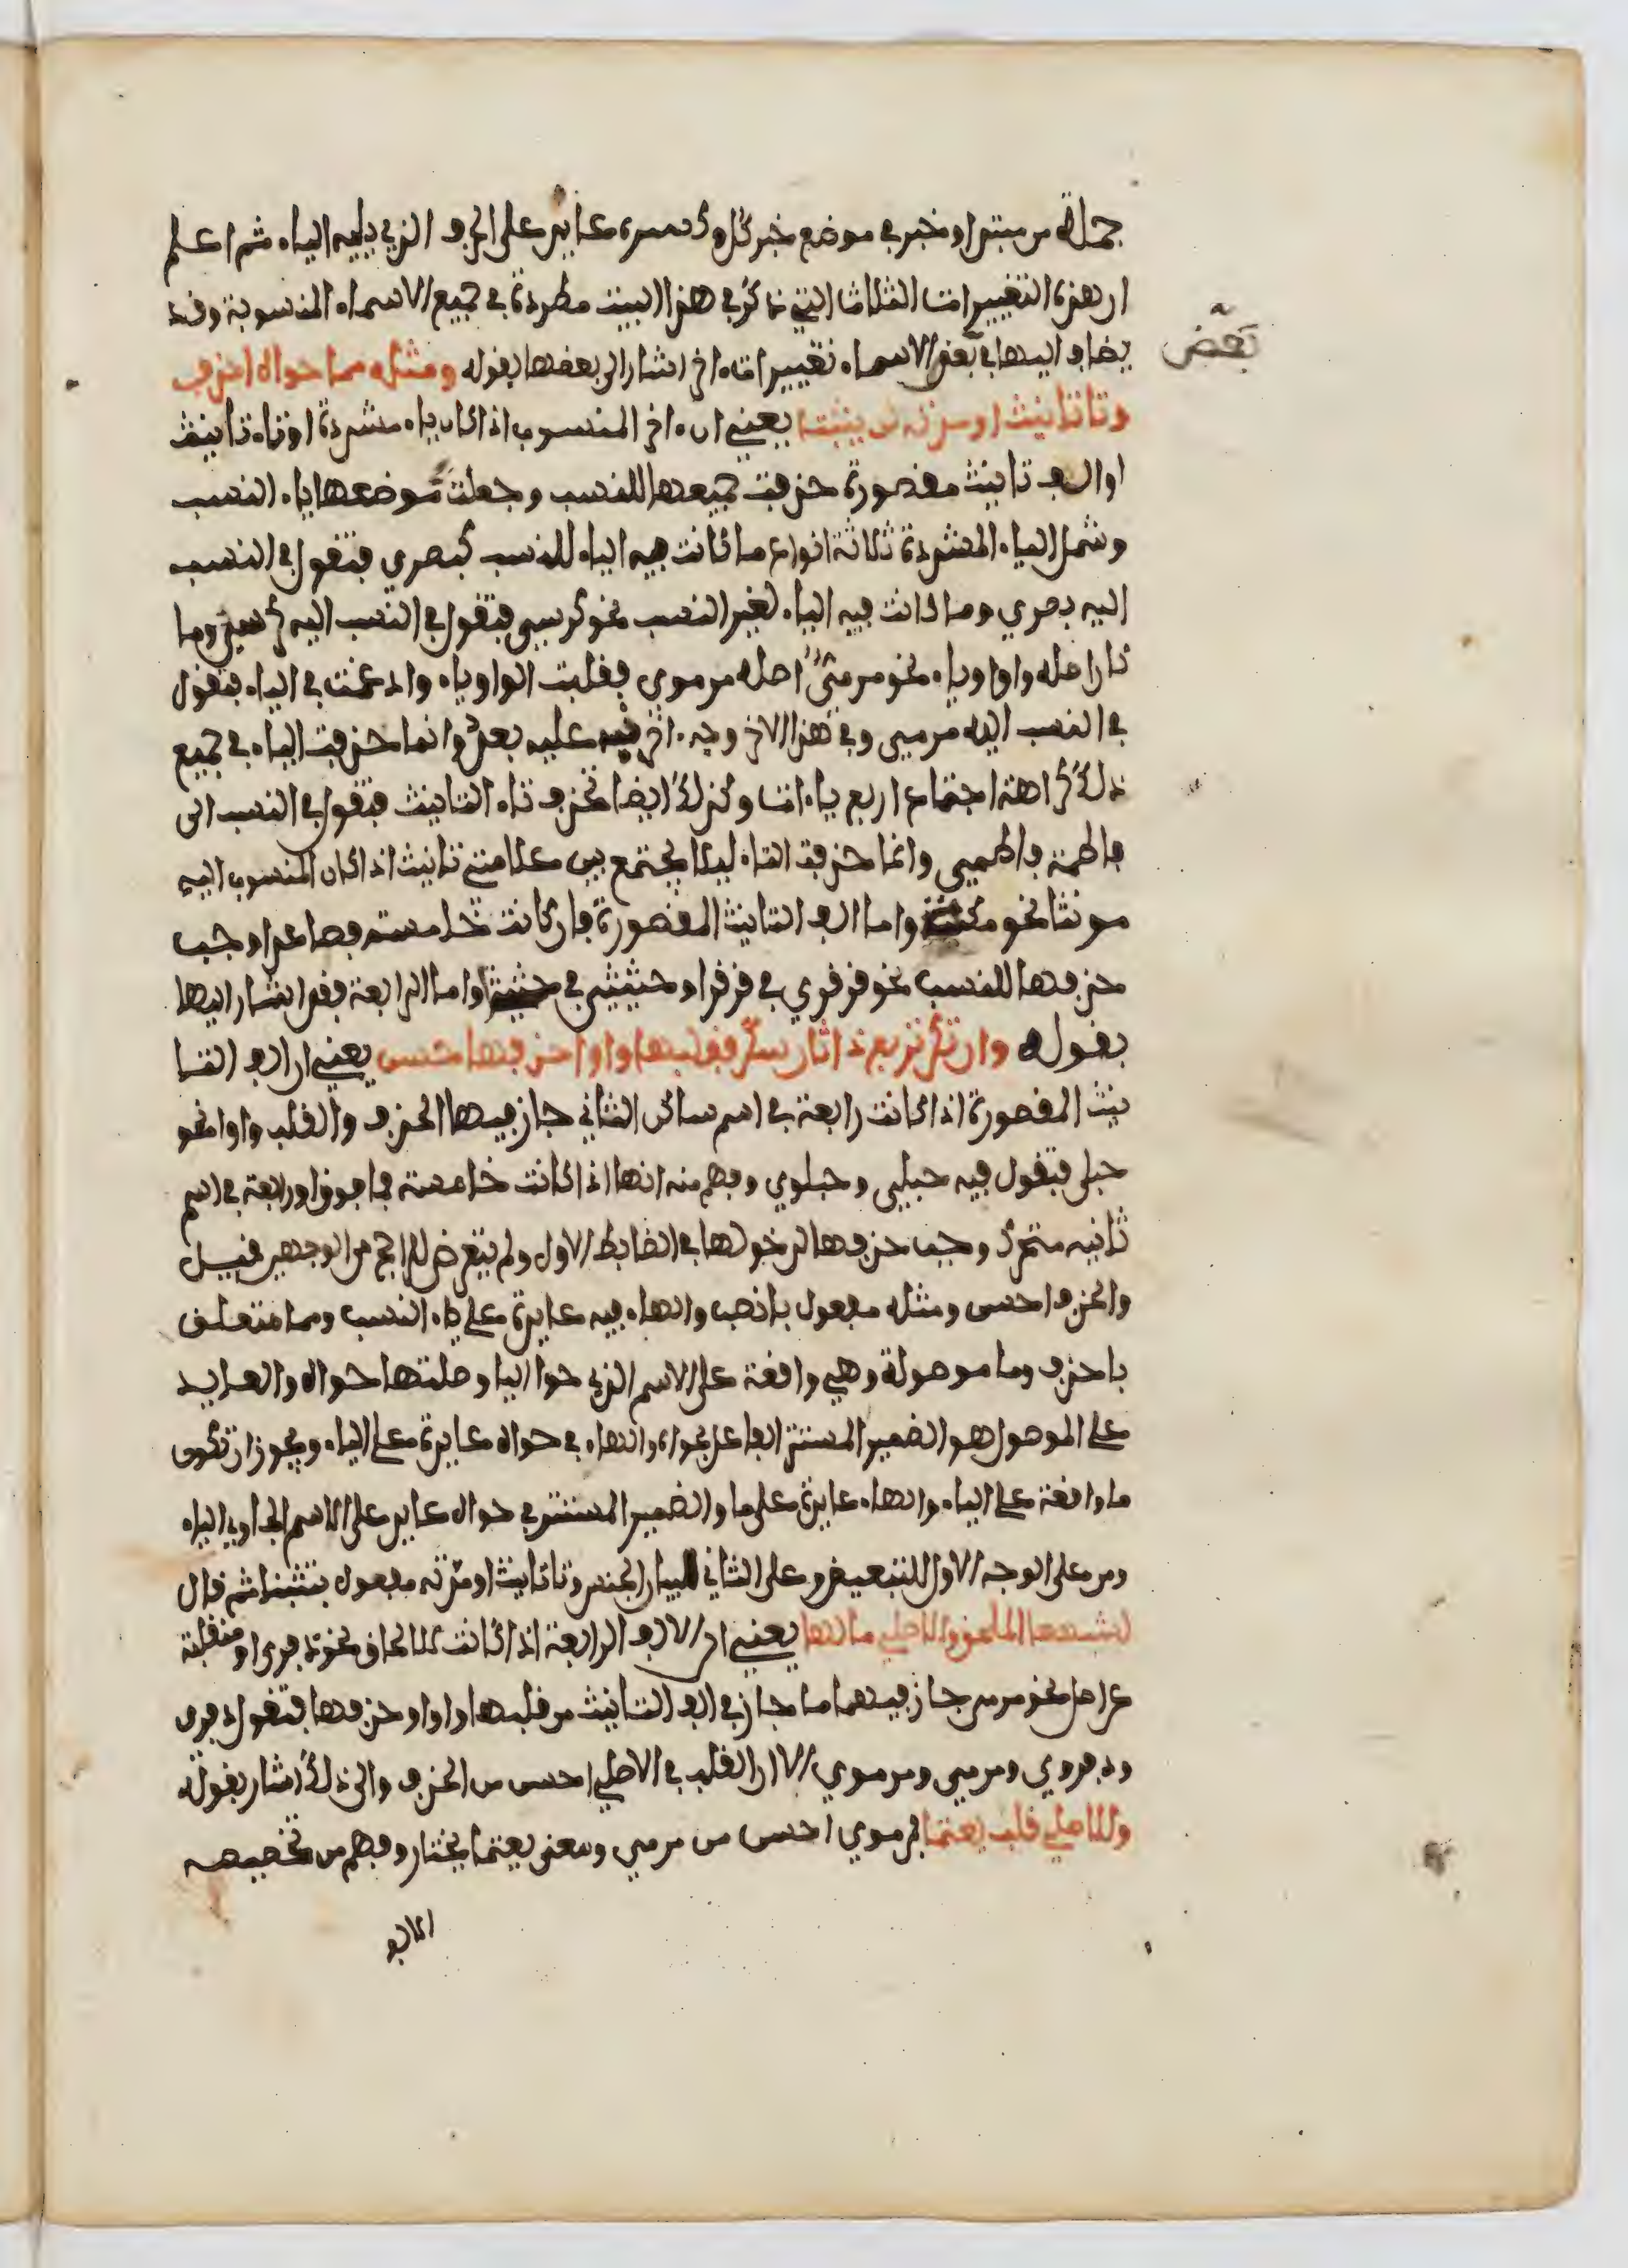 جملة من مبتدا وخبر في موضع خبر كل وكسره عايد على الحرف الذي يليه الياء ثم اعلم
ان هذه التغييرات الثلاث التي ذكر في هذا البيت مطردة في جميع الاسماء المنسوبة وقد
يضاف اليها في بعض الاسماء تغييرات اخر اشار الى بعضها بقوله ومثله مما حواه احذف
بعض
وتا تانيث او مدته لا يثبتا يعني ان اخر المنسوب اذا كان ياء مشددة او تاء تانيث
او الف تانيث مقصورة حذفت جميعها للنسب وجعلت موضعها ياء النسب
وشمل الياء المشددة ثلاثة انواع ما كانت فيه الياء للنسب كبصري فتقول في النسب
اليه بصري وما كانت فيه الياء لغير النسب نحو كرسي فتقول في النسب اليه كرسي وما
كان اصله واوا وياء نحو مرمي اصله مرموي فقلبت الواو ياء وادغمت في الياء فتقول
في النسب اليه مرمي وفي هذا الاخر وجه اخر نبه عليه بعد وانما حذفت الياء في جميع
ذلك كراهة اجتماع اربع ياءات وكذلك ايضا تحذف تاء التانيث فتقول في النسب الى
فاطمة فاطمي وانما حذفت التاء ليلا يجتمع بين علامتي تانيث اذا كان المنسوب اليه
مونثا نحو مكية واما الف التانيث المقصورة فان كانت خامسة فصاعدا وجب
حذفها للنسب نحو قرقري في قرقرا وحثيثي في حثيثا واما الرابعة فقد اشار اليها
بقوله وان تكن تربع ذا ثان سكن فقلبها واوا وحذفها حسن يعني ان الف التا
نيث المقصورة اذا كانت رابعة في اسم ساكن الثاني جاز فيها الحذف والقلب واوا نحو
حبلى فتقول فيه حبلي وحبلوي وفهم منه انها اذا كانت خامسة فما فوق او رابعة في اسم
ثانيه متحرك وجب حذفها لدخولها في الضابط الاول ولم يتعرض للراجح من الوجهين قيل
والحذف احسن ومثله مفعول باحذف والهاء فيه عايدة على ياء النسب ومما متعلق
باحذف وما موصولة وهي واقعة على الاسم الذي حوا اليا وصلتها حواه والعايد
على الموصول هو الضمير المستتر الفاعل بحواه والهاء في حواه عايدة على الياء ويجوز ان تكون
ما واقعة على الياء والهاء عايدة على ما والضمير المستتر في حواه عايد على الاسم الحاوي الياء
ومن على الوجه الاول للتبعيض وعلى الثاني لبيان الجنس وتا تانيث او مدته مفعول بتثبتا ثم قال
لشبهها الملحق والاصلي ما لها يعني ان الالف الرابعة اذا كانت للالحاق نحو ذفرى او منقلبة
عن اصل نحو مرمى جاز فيهما ما جاز في الف التانيث من قلبها واوا وحذفها فتقول ذفري
وذفروي ومرمي ومرموي الا ان القلب في الاصلي احسن من الحذف والى ذلك اشار بقوله
وللاصلي قلب يعتما فمرموي احسن من مرمي ومعنى يعتما يختار وفهم من تخصيصه
الالف